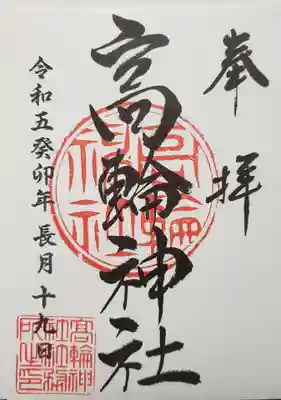 奉拝
高輪神社
令和五癸卯年長月十九日
高輪神社
高輪神社社務所之印